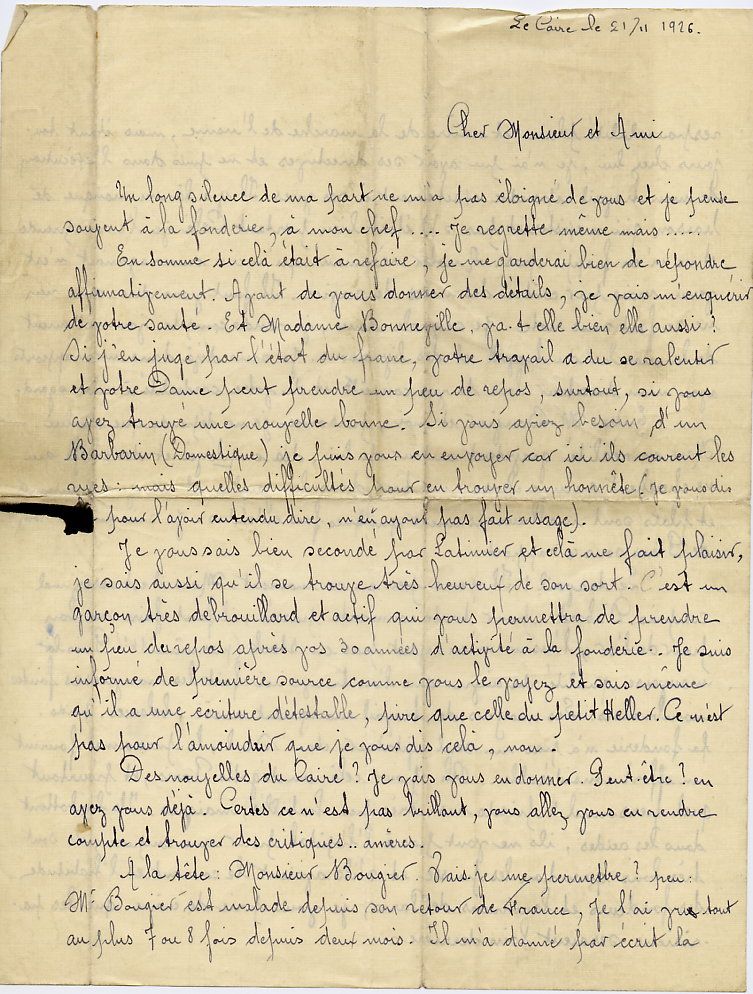 Le Caire le 21/11 1926.
Cher Monsieur et Ami
Un long silence de ma part ne m'a pas éloigné de vous et je pense
souvent à la fonderie, à mon chef .... Je regrette même mais .....
En somme si celà était à refaire, je me garderai bien de répondre
affirmativement. Avant de vous donner des détails, je vais m'enquérir
de votre santé. Et Madame Bonneville, va-t elle bien elle aussi ?
Si j'en juge par l'état du franc, votre travail a du se ralentir
et votre Dame peut prendre un peu de repos, surtout, si vous
avez trouvé une nouvelle bonne. Si vous aviez besoin d'un
Barbarin (Domestique) je puis vous en envoyer car ici ils courent les
rues : mais quelles difficultés pour en trouver un honnête (Je vous dis
pour l'avoir entendu dire, n'en ayant pas fait usage).
Je vous sais bien secondé par Latimier et celà me fait plaisir,
je sais aussi qu'il se trouve très heureux de son sort. C'est un
garçon très débrouillard et actif qui vous permettra de prendre
un peu du repos après vos 30 années d'activité à la fonderie. Je suis
informé de première source comme vous le voyez et sais même
qu'il a une écriture détestable, pire que celle du petit Heller. Ce n'est
pas pour l'amoindrir que je vous dis celà, non.
Des nouvelles du Caire ? Je vais vous en donner. Peut-être ? en
avez vous déjà. Certes ce n'est pas brillant, vous allez vous en rendre
compte et trouver des critiques .. amères.
A la tête : Monsieur Bougier. Vais-je me permettre ? peu :
Mr Bougier est malade depuis son retour de France, Je l'ai vu tout
au plus 7 ou 8 fois depuis deux mois. Il m'a donné par écrit la